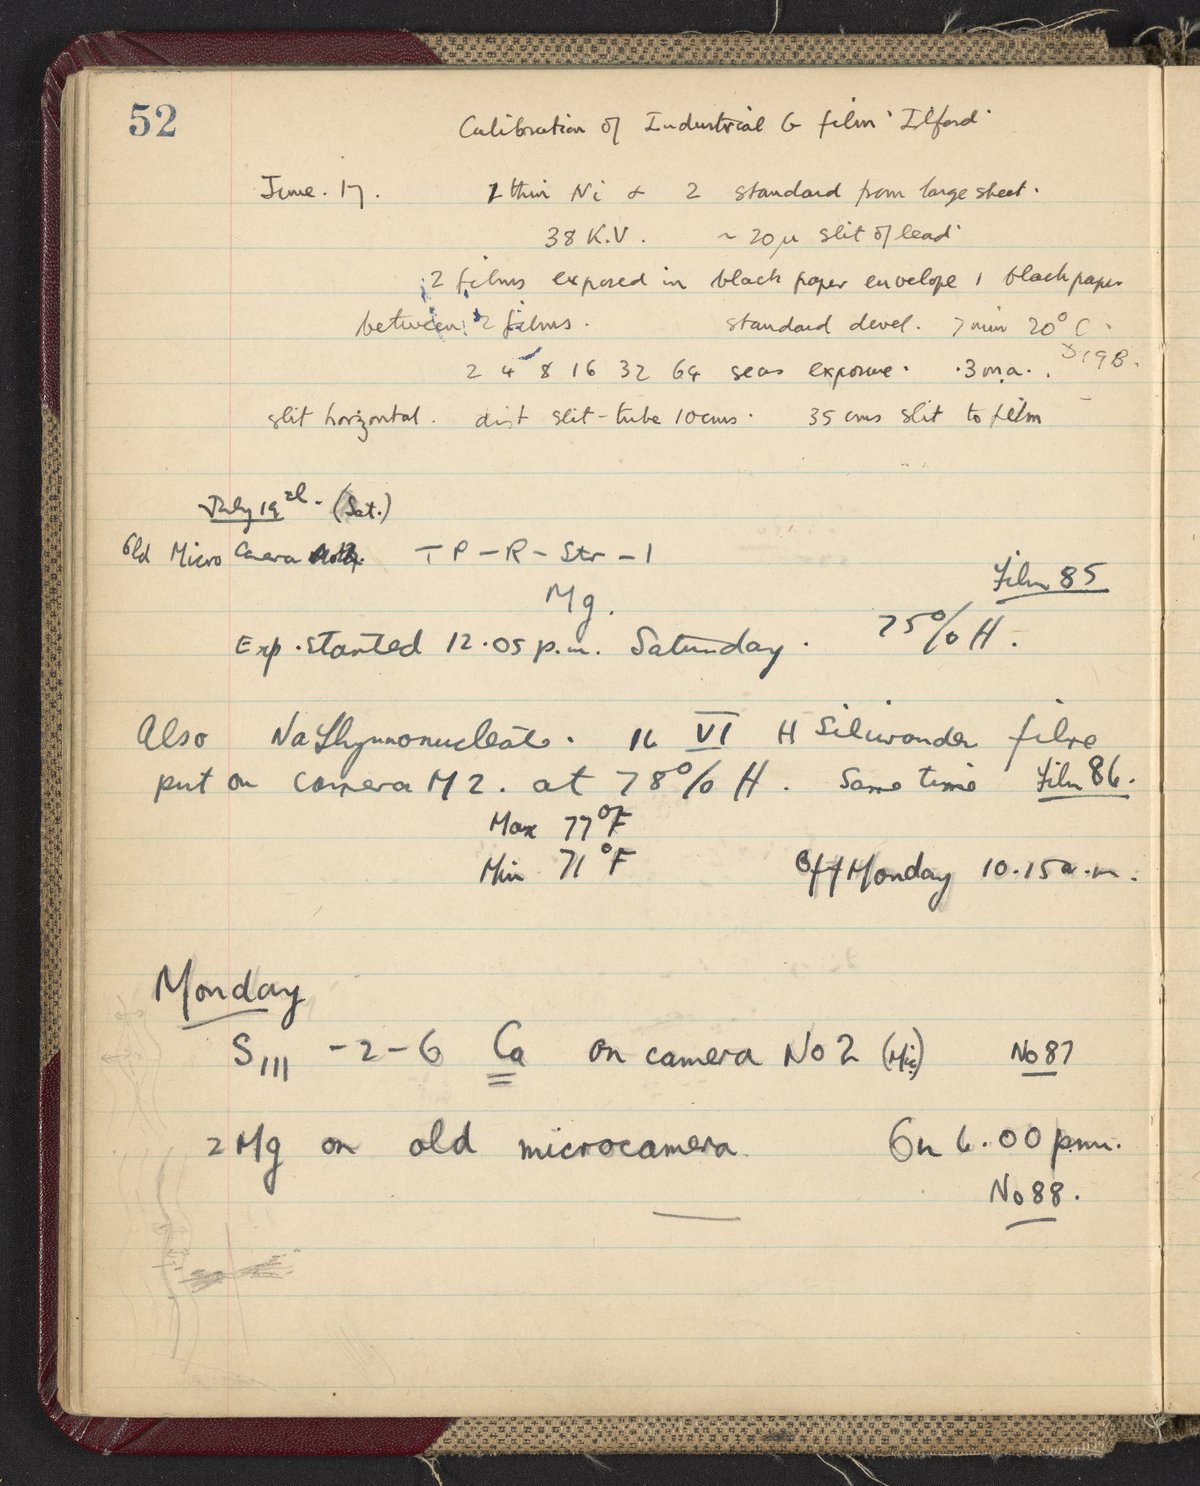 52
Calibration of Industrial G film 'Ilford'
June. 17. 1 thin Ni & 2 standard from large sheet.
38 K.V. ~ 20μ slit of lead
2 films exposed in black paper envelope 1 black paper
between 2 films. standard devel. 7 min 20° C.
D19B.
2 4 8 16 32 64 secs exposure. .3 m.a.
slit horizontal. dist slit-tube 10 cms. 35 cms slit to film
July 19 (Sat.)
Old Micro Camera TP-R-Str-1
Mg. Film 85
Exp. started 12.05 p.m. Saturday. 75% H.
Also Na Thymonucleate. 16 VI H fibre
put on camera M2. at 78% H. Same time Film 86.
Max 77°F
Min 71°F Off Monday 10.15 a.m.
Monday
S III -2-6 Ca on camera No 2 No 87
2 Mg on old microcamera. On 6.00 p.m.
No 88.